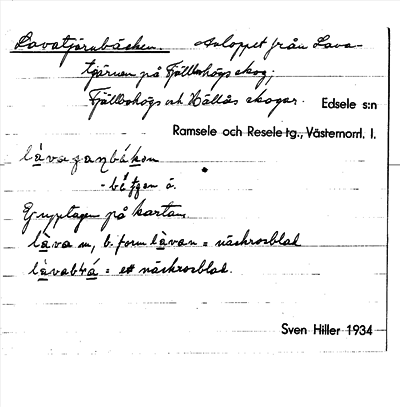 Lavatjärnbäcken. Avloppet från Lava-
tjärnen på Fjällbohögs skog;
Fjällbohögs och Hällås skogar. Edsele s:n
Ramsele och Resele tg., Västernorrl. l.
làva
å.
Ej upptagen på kartan
làva m, b. form làvan = näckrosblad
= ett näckrosblad.
Sven Hiller 1934